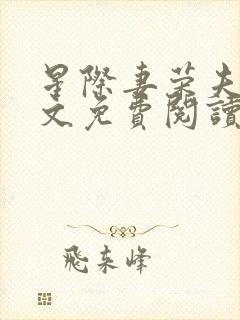 星際妻榮夫
文免費閱讀
飛來峰